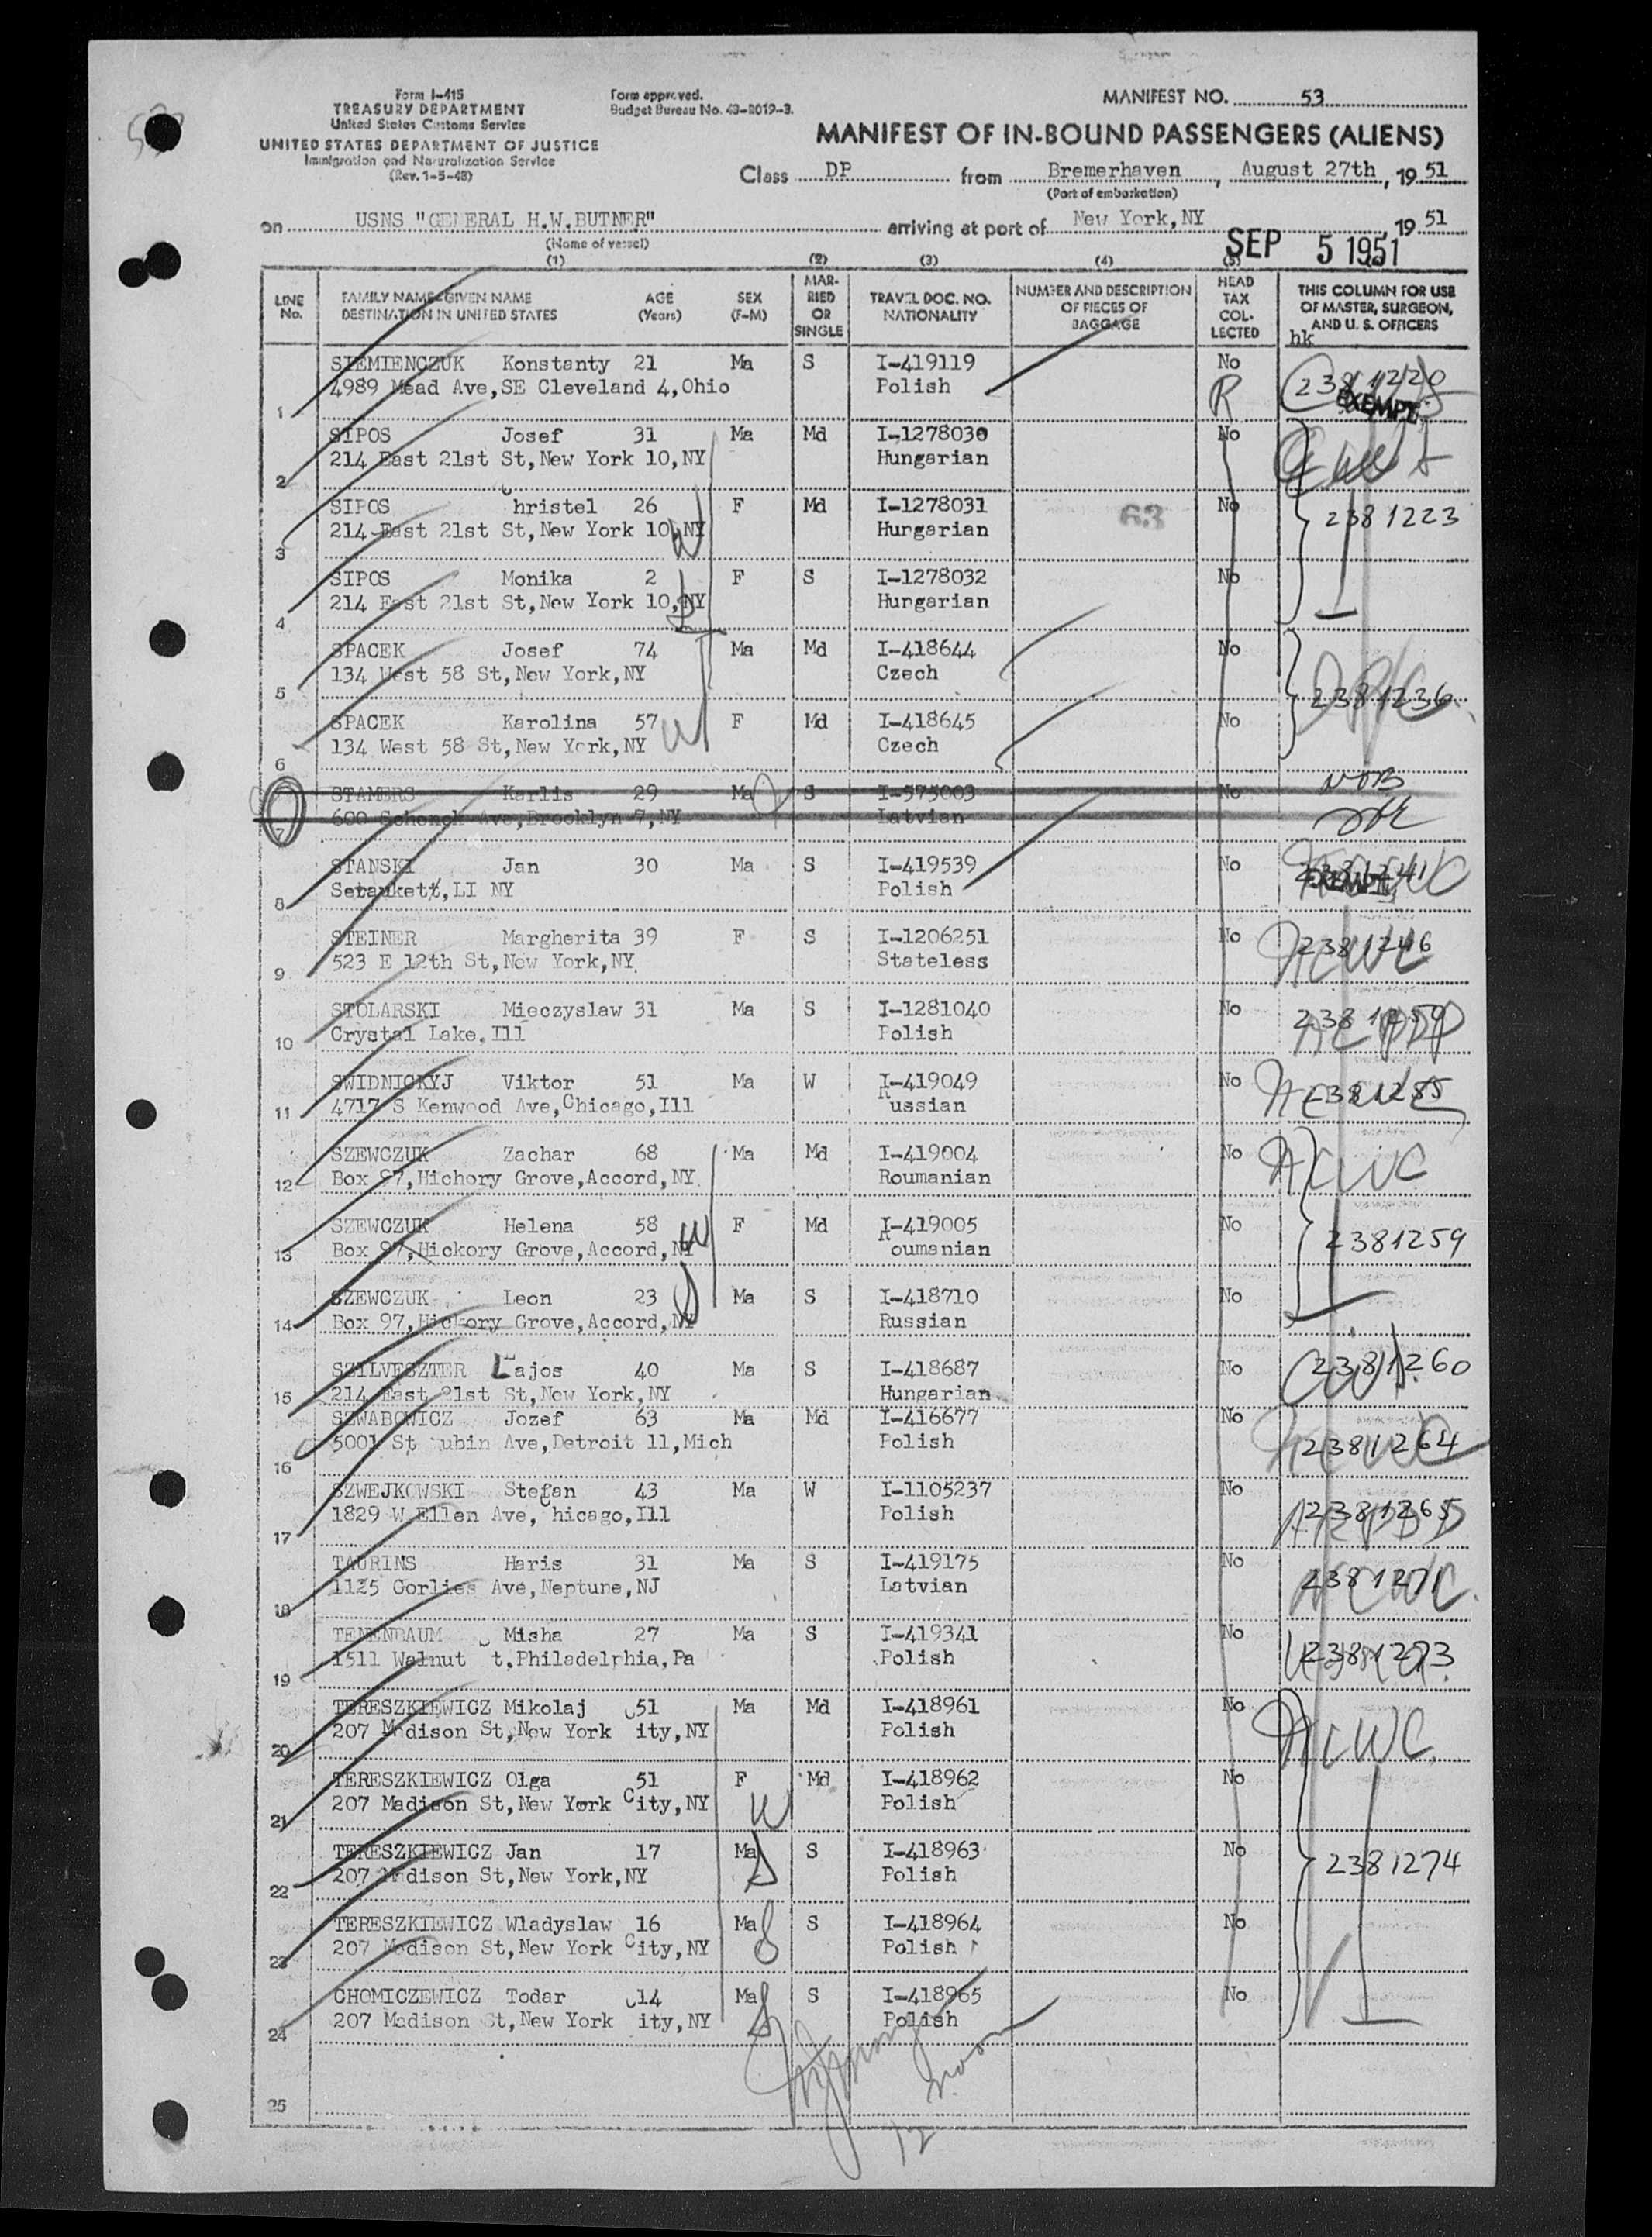 Form I-415
TREASURY DEPARTMENT
United States Customs Service
UNITED STATES DEPARTMENT OF JUSTICE
Immigration and Naturalization Service
(Rev. 1-5-48)
Form approved.
Budget Bureau No. 43-R019-3.
MANIFEST NO. 53
MANIFEST OF IN-BOUND PASSENGERS (ALIENS)
Class DP from Bremerhaven, August 27th, 19 51
(Port of embarkation)
on USNS "GENERAL H.W.BUTNER" arriving at port of New York,NY, 19 51
(Name of vessel)
SEP 5 1951
(1) (2) (3) (4) (5)
LINE No. FAMILY NAME-GIVEN NAME DESTINATION IN UNITED STATES AGE (Years) SEX (F-M) MARRIED OR SINGLE TRAVEL DOC. NO. NATIONALITY NUMBER AND DESCRIPTION OF PIECES OF BAGGAGE HEAD TAX COLLECTED THIS COLUMN FOR USE OF MASTER, SURGEON, AND U. S. OFFICERS
hk
SIEMIENCZUK Konstanty 21 Ma S I-419119 No 2381220
1 4989 Mead Ave,SE Cleveland 4,Ohio Polish R EXEMPT
SIPOS Josef 31 Ma Md I-1278030 No
2 214 East 21st St,New York 10,NY Hungarian
SIPOS Christel 26 F Md I-1278031 63 No 2381223
3 214 East 21st St,New York 10,NY Hungarian
SIPOS Monika 2 F S I-1278032 No
4 214 East 21st St,New York 10,NY Hungarian
SPACEK Josef 74 Ma Md I-418644 No
5 134 West 58 St,New York,NY Czech 2381236
SPACEK Karolina 57 F Md I-418645 No
6 134 West 58 St,New York,NY Czech
STAMERS Karlis 29 Ma S I-575003 No NOB
7 600 Schenck Ave,Brooklyn 7,NY Latvian
STANSKI Jan 30 Ma S I-419539 No 2381241
8 Setauket,LI NY Polish EXEMPT
STEINER Margherita 39 F S I-1206251 No 2381246
9 523 E 12th St,New York,NY Stateless NCWC
STOLARSKI Mieczyslaw 31 Ma S I-1281040 No
10 Crystal Lake,Ill Polish
SWIDNICKYJ Viktor 51 Ma W I-419049 No
11 4717 S Kenwood Ave,Chicago,Ill Russian
SZEWCZUK Zachar 68 Ma Md I-419004 No NCWC
12 Box 97,Hichory Grove,Accord,NY Roumanian
SZEWCZUK Helena 58 F Md I-419005 No 2381259
13 Box 97,Hickory Grove,Accord,NY Roumanian
SZEWCZUK Leon 23 Ma S I-418710 No
14 Box 97,Hickory Grove,Accord,NY Russian
SZILVESZTER Lajos 40 Ma S I-418687 No 2381260
15 214 East 21st St,New York,NY Hungarian
SZWABOWICZ Jozef 63 Ma Md I-416677 No 2381264
16 5001 St ubin Ave,Detroit 11,Mich Polish
SZWEJKOWSKI Stefan 43 Ma W I-1105237 No 2381265
17 1829 W Ellen Ave,Chicago,Ill Polish
TAURINS Haris 31 Ma S I-419175 No 2381271
18 1125 Gorlies Ave,Neptune,NJ Latvian NCWC
TENENBAUM Misha 27 Ma S I-419341 No 2381273
19 1511 Walnut t,Philadelphia,Pa Polish
TERESZKIEWICZ Mikolaj 51 Ma Md I-418961 No NCWC
20 207 Madison St,New York City,NY Polish
TERESZKIEWICZ Olga 51 F Md I-418962 No
21 207 Madison St,New York City,NY Polish
TERESZKIEWICZ Jan 17 Ma S I-418963 No 2381274
22 207 Madison St,New York,NY Polish
TERESZKIEWICZ Wladyslaw 16 Ma S I-418964 No
23 207 Madison St,New York City,NY Polish
CHOMICZEWICZ Todar 14 Ma S I-418965 No
24 207 Madison St,New York City,NY Polish
25
12